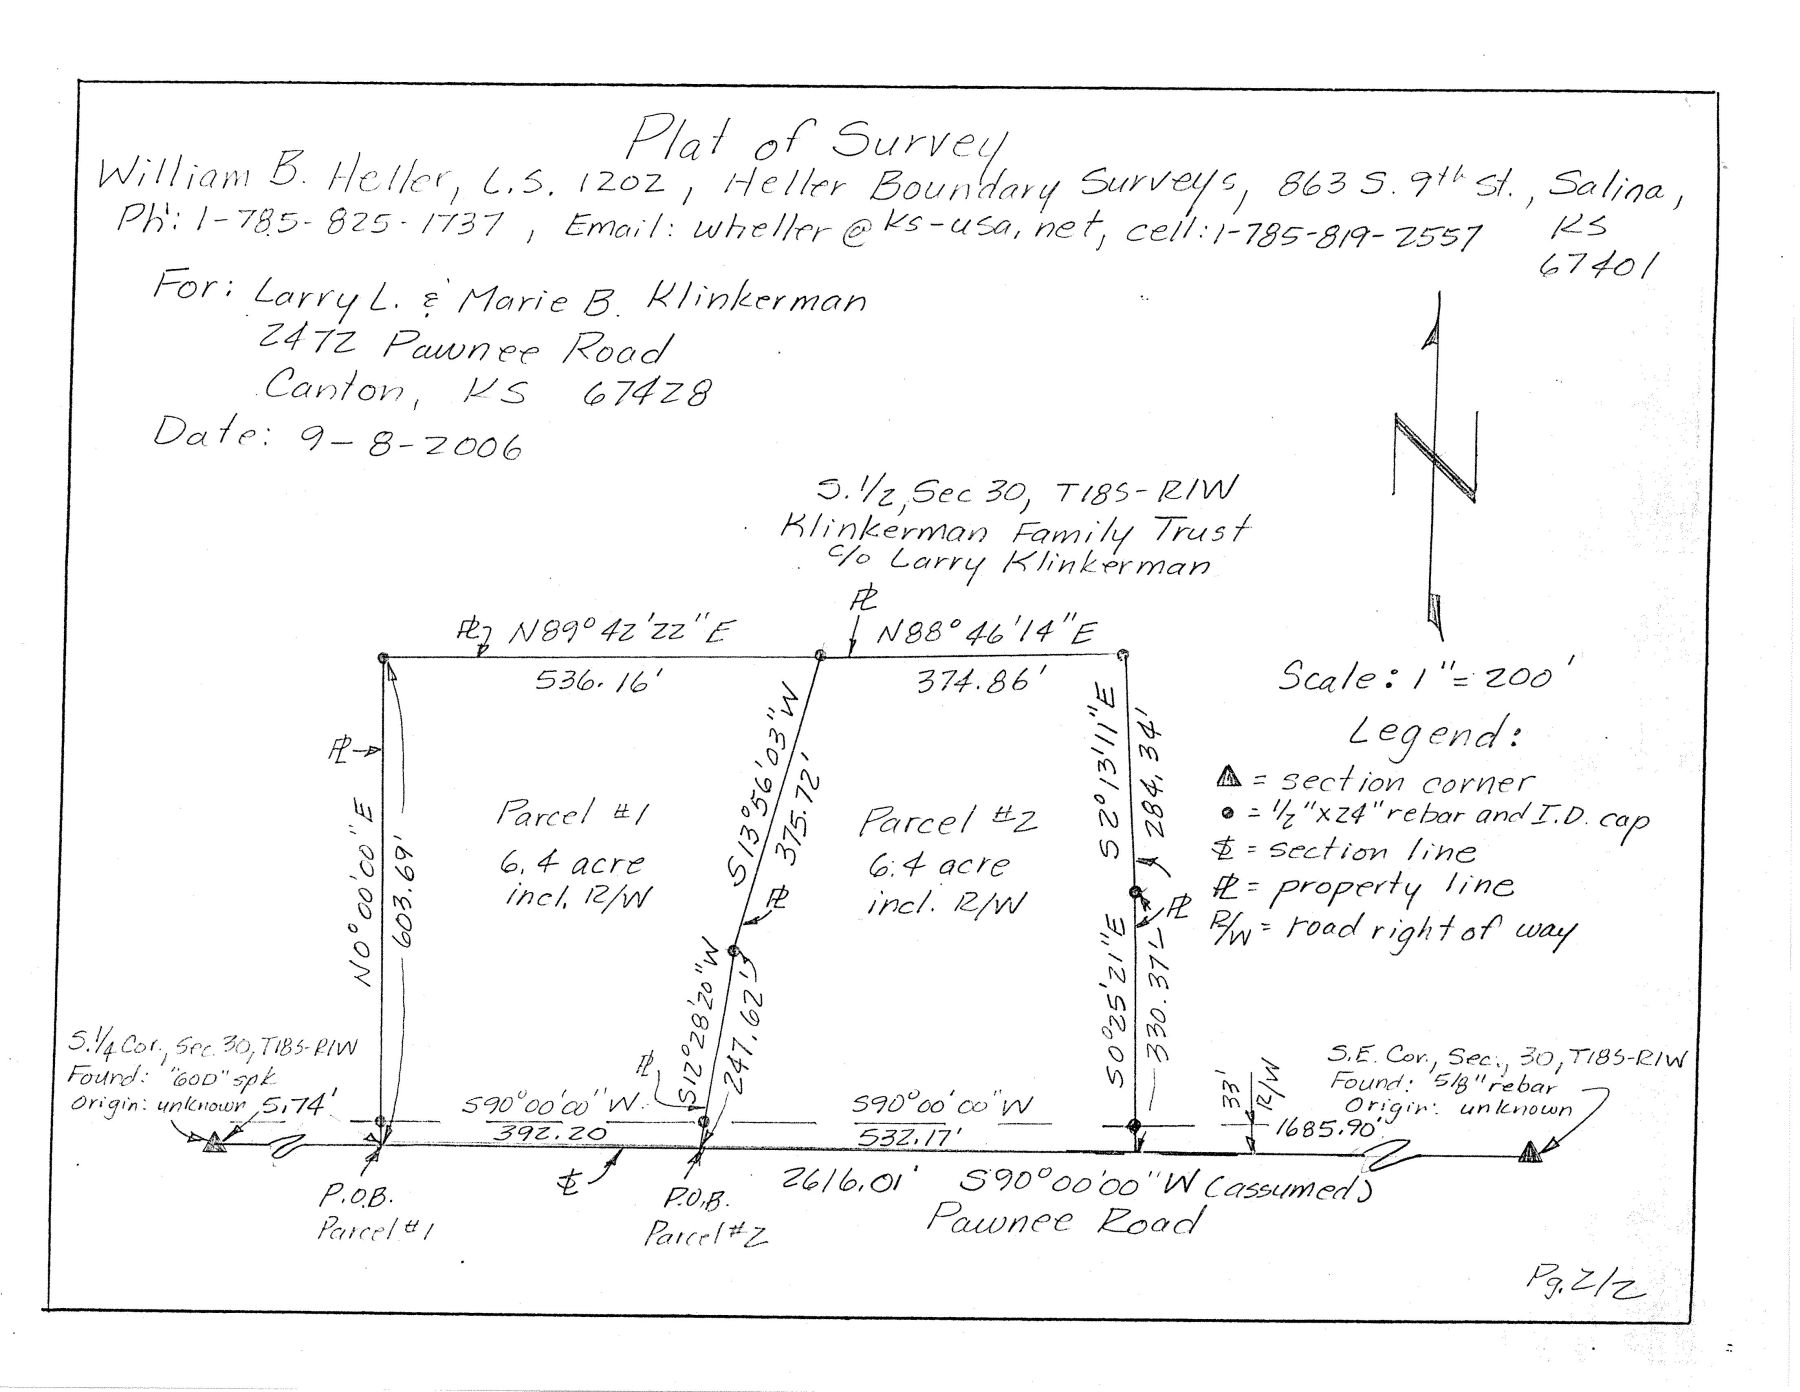 Plat of Survey
William B. Heller, L.S. 1202, Heller Boundary Surveys, 863 S. 9th St., Salina,
Ph: 1-785-825-1737, Email: wheller@ks-usa.net, cell: 1-785-819-2557 KS
67401
For: Larry L. & Marie B. Klinkerman
2472 Pawnee Road
Canton, KS 67428
Date: 9-8-2006
N
S. 1/2, Sec 30, T18S-R1W
Klinkerman Family Trust
c/o Larry Klinkerman
PL
PL N89°42'22"E
N88°46'14"E
536.16'
374.86'
Scale: 1"=200'
Legend:
▲ = section corner
● = 1/2"x24" rebar and I.D. cap
SL = section line
PL = property line
R/W = road right of way
PL
N0°00'00"E
603.69'
Parcel #1
6.4 acre
incl. R/W
S13°56'03"W
375.72'
PL
S12°28'20"W
247.62'
PL
Parcel #2
6.4 acre
incl. R/W
S2°13'11"E
284.34'
PL
S0°25'21"E
330.37'
S.1/4 Cor., Sec. 30, T18S-R1W
Found: "60D" spk
Origin: unknown 5.74'
S90°00'00"W
392.20
S90°00'00"W
532.17'
33'
R/W
1685.90'
S.E. Cor., Sec., 30, T18S-R1W
Found: 5/8" rebar
Origin: unknown
P.O.B.
Parcel #1
SL
P.O.B.
Parcel #2
2616.01' S90°00'00"W (assumed)
Pawnee Road
Pg. 2/2